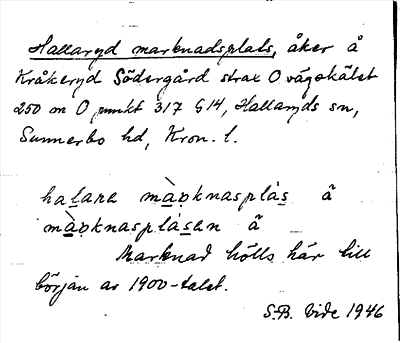 Hallaryd marknadsplats, åker å
Kråkeryd Södergård strax O vägskälet
250 m O punkt 317 G14, Hallaryds sn,
Sunnerbo hd, Kron. l.
halare màrknasplás ä
màrknasplásen ä
Marknad hölls här till
början av 1900-talet.
S.B. Vide 1946